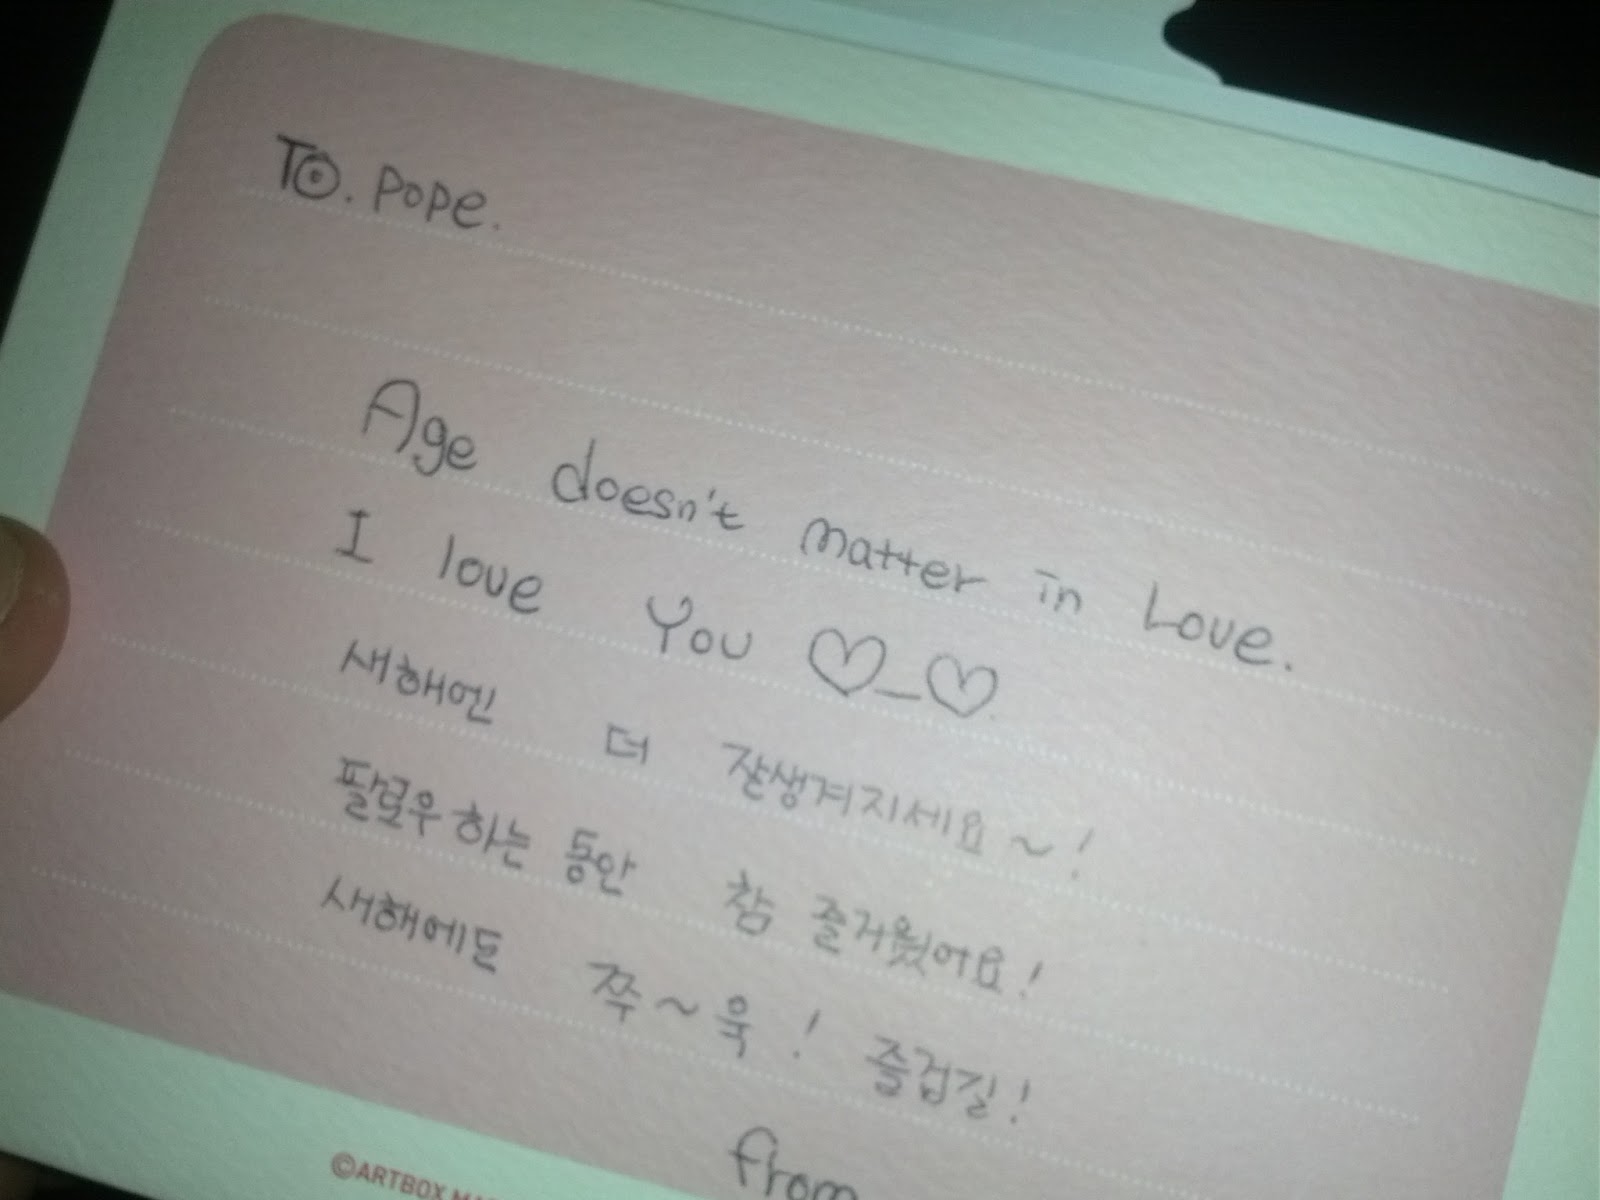 To. Pope.
Age doesn't matter in Love.
I love You ♡_♡
새해엔 더 잘생겨지세요~!
팔로우 하는 동안 참 즐거웠어요!
새해에도 쭈~욱! 즐겁길!
from
©ARTBOX